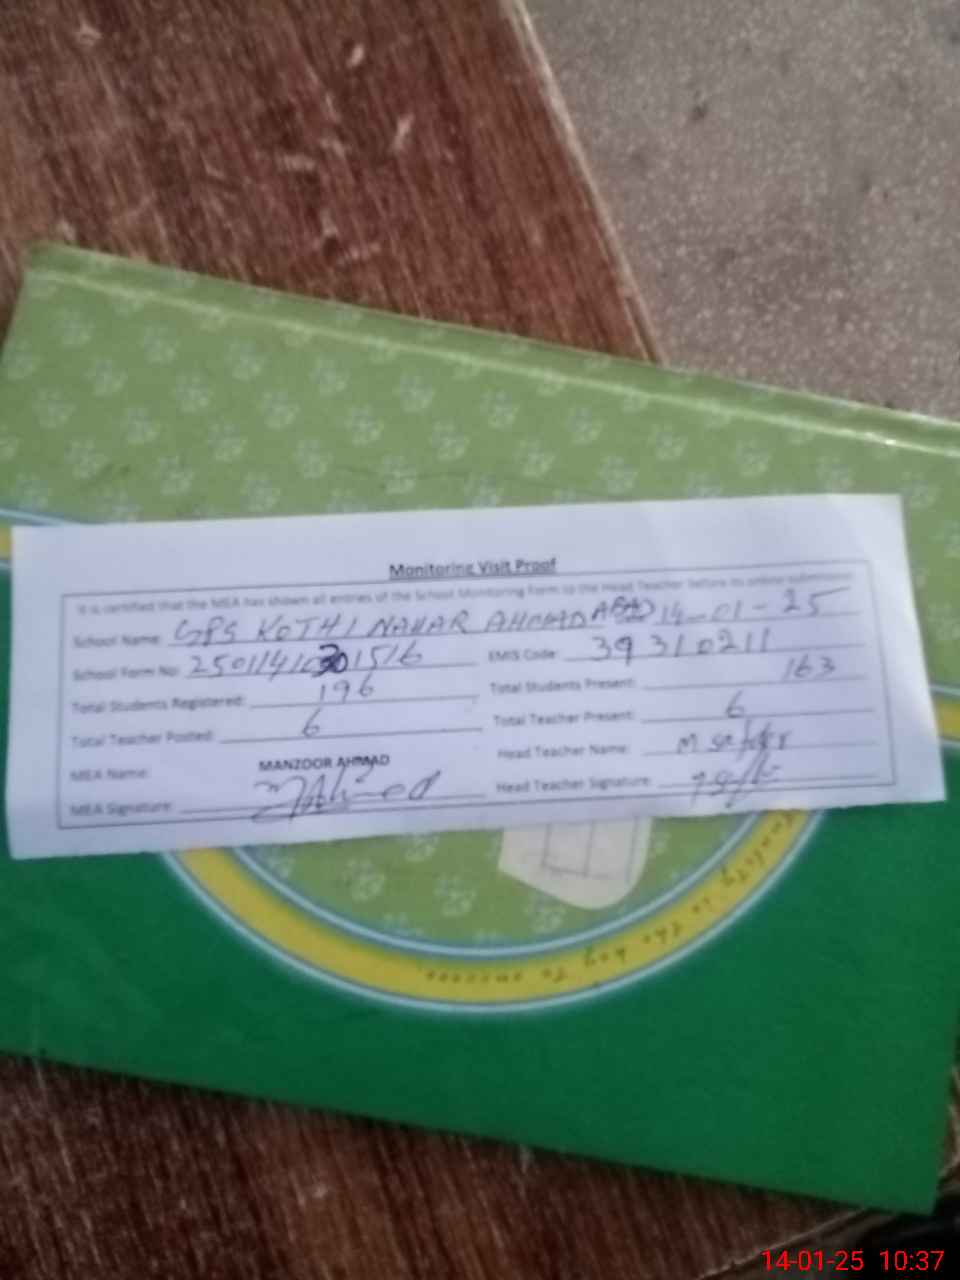 Monitoring Visit Proof
It is certified that the MEA has shown all entries of the School Monitoring Form to the Head Teacher before its online submission
School Name: GPS KOTHI NAHAR AHMAD ABAD 14-01-25
School Form No: EMIS Code: 39310211
Total Students Registered: 196 Total Students Present: 163
Total Teacher Posted: 6 Total Teacher Present: 6
MEA Name: MANZOOR AHMAD Head Teacher Name: M
MEA Signature: Head Teacher Signature:
Quality is the key to success
14-01-25 10:37